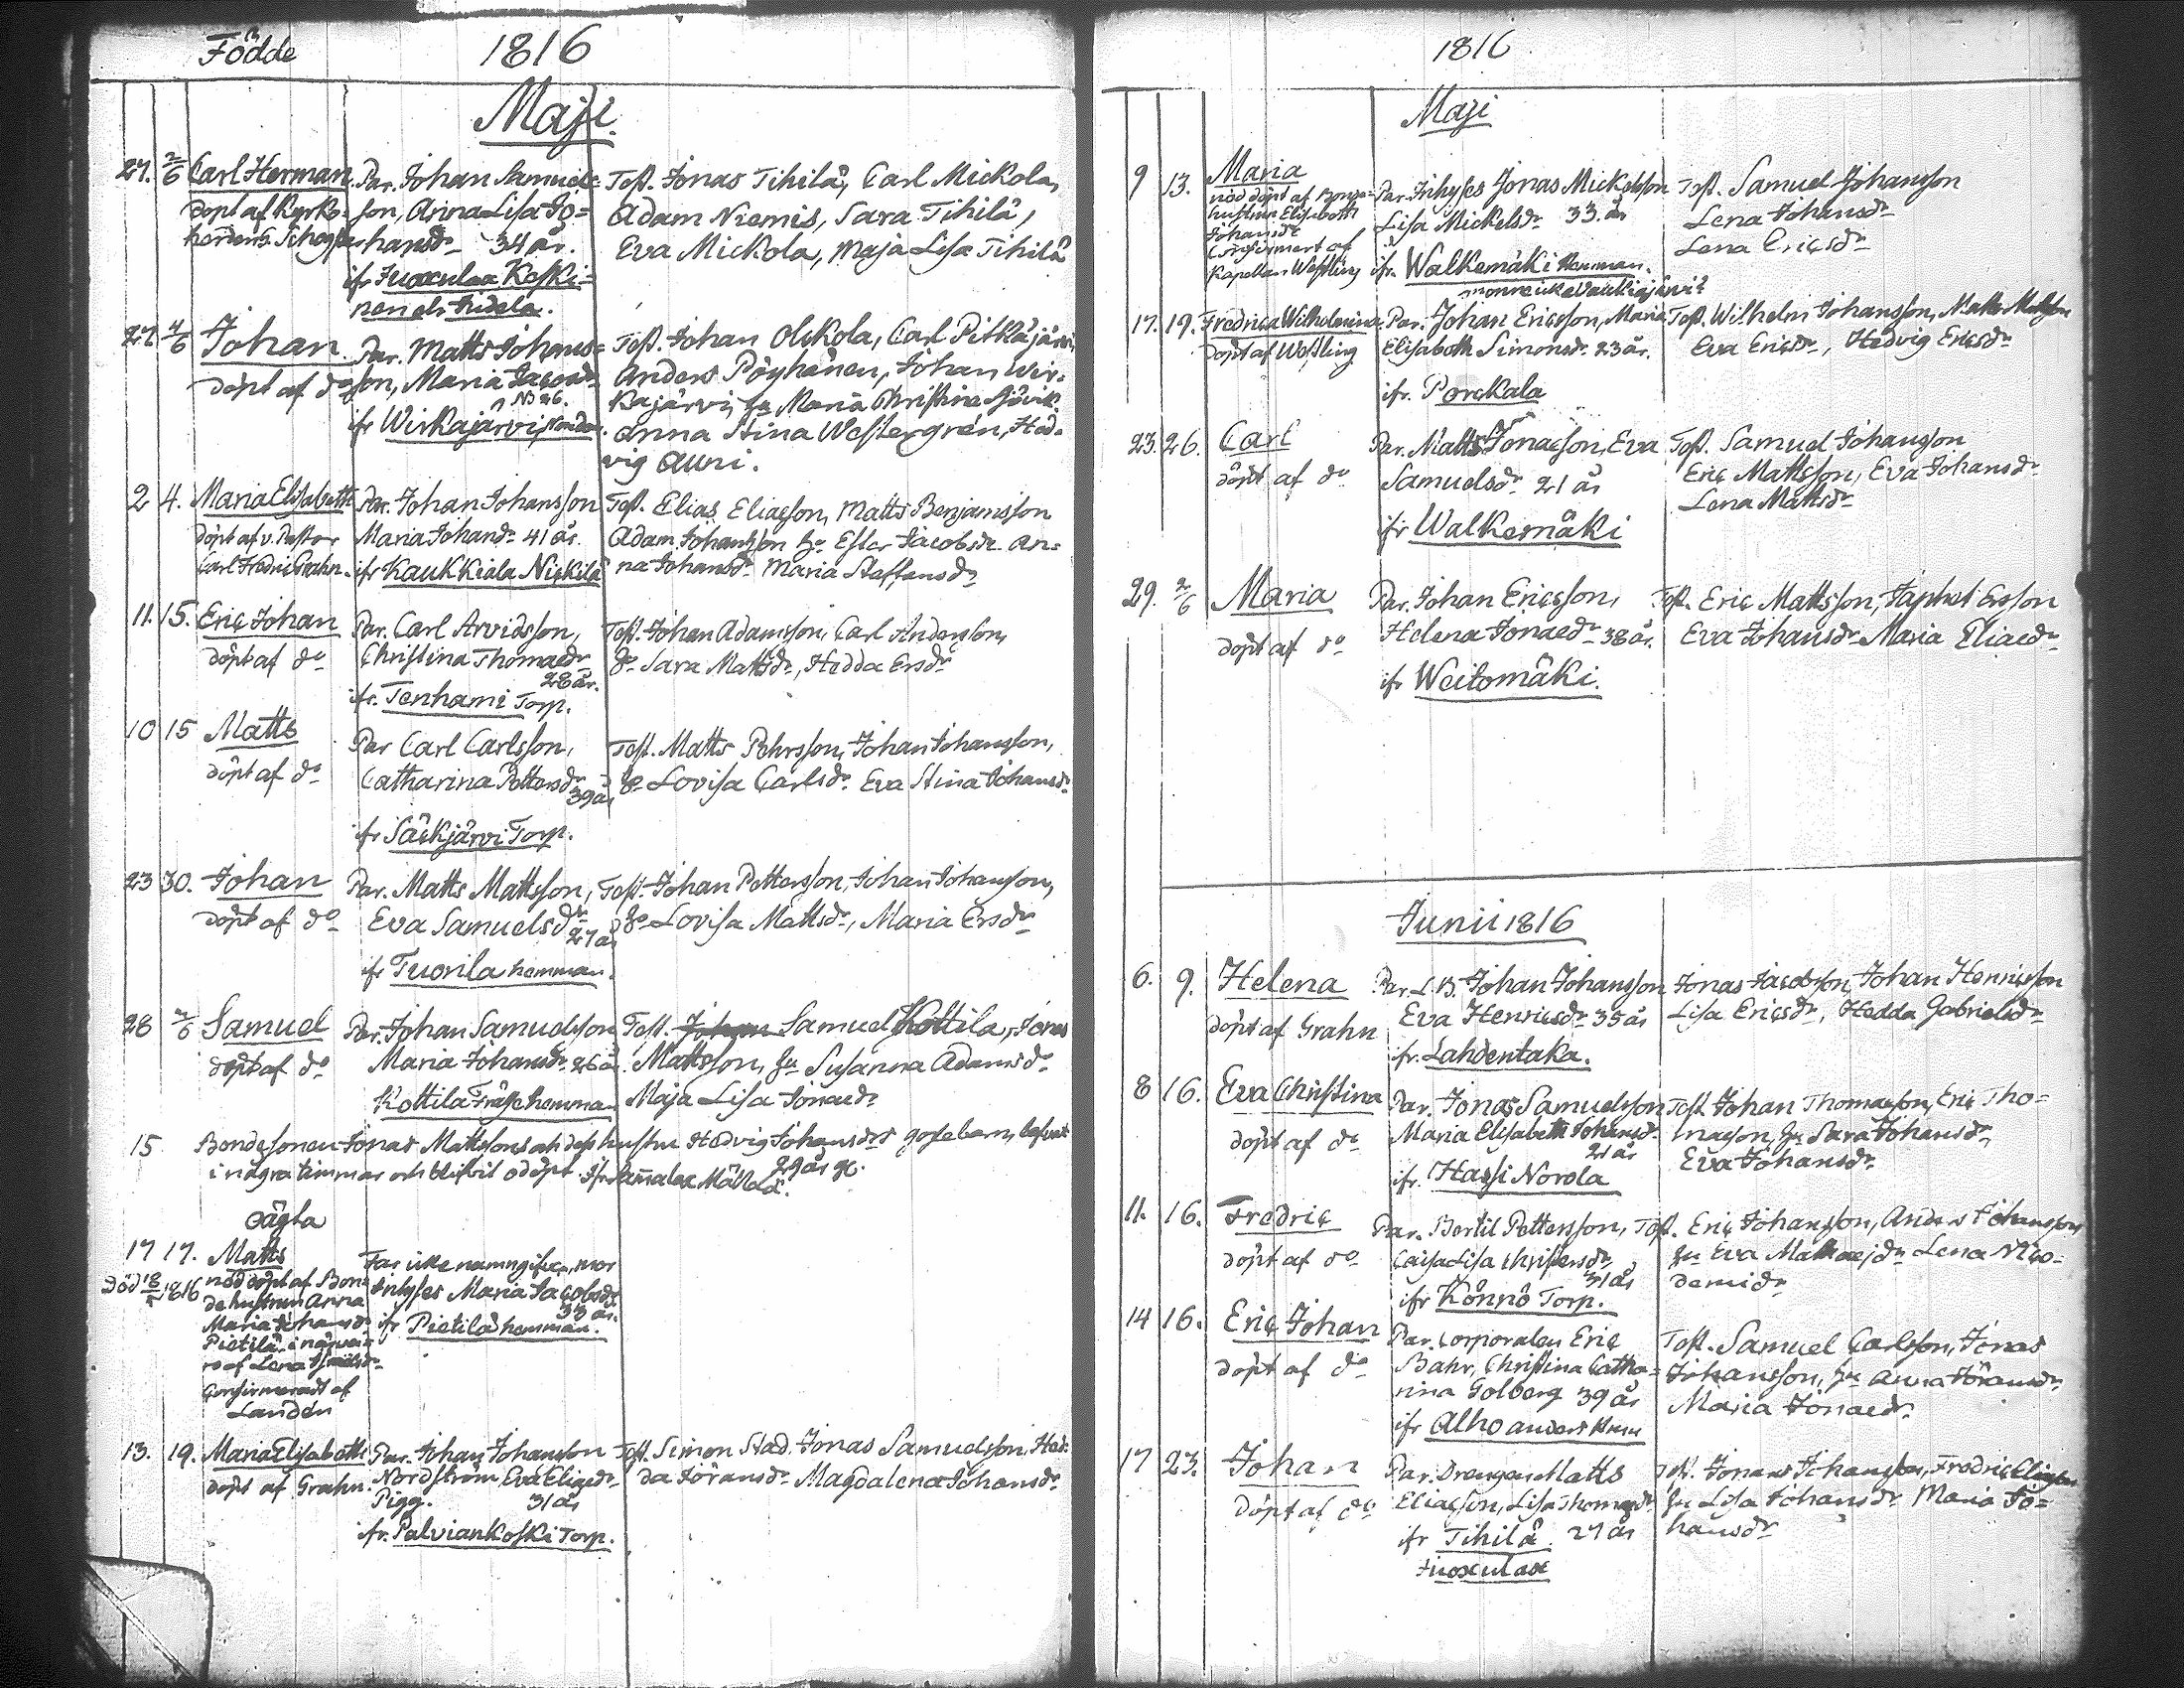 Födde 1816
Maji
27. 2/6 Carl Herman. Par. Johan Samuels-
döpt af Kyrko- son, Anna Lisa Jo-
herdens hansdr 34 år.
ifr Juoxulax Koski-
nen
Test. Jonas Tihilä, Carl Mickola,
Adam Niemis, Sara Tihilä,
Eva Mickola, Maja Lisa Tihilä
27. 4/6 Johan Par. Matts Johans-
döpt af do son, Maria
ifr Wirkajärvi
Test. Johan Olckola, Carl Pitkäjärvi
Anders Pöyhänen, Johan Wir-
kajärvi, Maria Christina
Anna Stina Westergrén, Hed-
vig Auni.
2 4. Maria Elisabeth Par. Johan Johansson
döpt af v. Pastor Maria Johansdr 41 år.
Carl Fredric Grahn. ifr Kaukkiala Nickilä
Test. Elias Eliasson, Matts Benjamisson
Adam Johansson Ester Jacobsdr An-
na Johansdr Maria Staffansdr
11. 15. Eric Johan Par. Carl Arvidsson,
döpt af do Christina Thomaedr
28 år.
ifr. Tenhami Torp.
Test. Johan Adamsson, Carl Andersson,
Sara Mattsdr, Hedda Ersdr
10 15 Matts Par Carl Carlsson,
döpt af do Catharina Pettersdr
39 år
ifr Säckjärvi Torp.
Test. Matts Pehrsson, Johan Johansson,
Lovisa Carlsdr. Eva Stina Johansdr
23 30. Johan Par. Matts Mattsson,
döpt af do Eva Samuelsdr
27 år
ifr Tuorila hemman.
Test. Johan Pettersson, Johan Johansson,
Lovisa Mattsdr, Maria Ersdr
28 2/6 Samuel Par. Johan Samuelsson
döpt af do Maria Johansdr 26 år.
Kottila Frälse hemman
Test. Johan Samuel Kottila, Jonas
Mattsson, Susanna Adamsdr
Maja Lisa Jonaedr
15 Bondesonen Jonas Mattssons och dess hustru Hedvig Johansdrs gossebarn, lefvat
i några timmar och blifvit odöpt. 29 år
oägta
17 17. Matts Far icke namngifven, mor
Död 18/5 1816 nöddöpt af Bon- inhyses Maria Jacobsdr
dehustrun Anna 33 år.
Maria Johansdr ifr Pietilä hemman.
Pietilä i närva-
ro af Lena
Confirmeradt af
Landén
13. 19. Maria Elisabeth Par. Johan Johansson
döpt af Grahn. Nordström Eva Eliaedr
Pigg. 31 år
ifr. Palviankoski Torp.
Test. Simon Stad. Jonas Samuelsson, Hed-
da Göransdr Magdalena Johansdr
1816
Maji
9 13. Maria Par. Inhyses Jonas Mickelsson
nöddöpt af Bonde- Lisa Mickelsdr 33. år
hustrun Elisabeth
Johansdr
Confirmert af
Kapellan Westling ifr. Walkemäki hemman.
Test. Samuel Johansson
Lena Johansdr
Lena Ericsdr
17. 19. Fredrica Wilhelmina Par. Johan Ericsson, Maria
döpt af Westling Elisabeth Simonsdr 23 år.
ifr. Porckala
Test. Wilhelm Johansson, Matts Mattsson
Eva Ericsdr, Hedvig Ericsdr
23. 26. Carl Par. Matts Jonaeson, Eva
döpt af do Samuelsdr 21 år
ifr Walkemäki
Test. Samuel Johansson
Eric Mattsson, Eva Johansdr
Lena Mattsdr
29. 2/6 Maria Par. Johan Ericsson,
döpt af do Helena Jonaedr 38 år.
ifr Weitomäki.
Test. Eric Mattsson, Japhet Ersson
Eva Johansdr Maria Eliaedr
Junii 1816
6. 9. Helena Par. L.B. Johan Johansson
döpt af Grahn Eva Henricsdr 35 år
ifr. Lahdentaka.
Jonas Jacobsson, Johan Henricsson
Lisa Ericsdr, Hedda Gabrielsdr
8 16. Eva Christina Par. Jonas Samuelsson
döpt af do Maria Elisabeth Johansdr
21 år
ifr. Hassi Norola
Test Johan Thomaeson, Eric Tho-
maeson, Sara Johansdr,
Eva Johansdr
11. 16. Fredric Par. Bertil Pettersson,
döpt af do Caisa Lisa Christersdr,
31 år
ifr Könnö Torp.
Test. Eric Johansson, Anders Johansson
Eva Mathaejdr Lena Nico-
demidr
14 16. Eric Johan Par. Corporalen Eric
döpt af do Bahr, Christina Catha-
rina Golberg 39 år
ifr Alho
Test. Samuel Carlsson, Jonas
Johansson, Anna Göransdr
Maria Jonaedr
17 23. Johan Par. Drengen Matts
döpt af do Eliaesson, Lisa Thomaedr
ifr Tihilä 27 år
Juoxulax
Test. Jonas Johansson, Fredric Eliasson
Lisa Johansdr Maria Jo-
hansdr